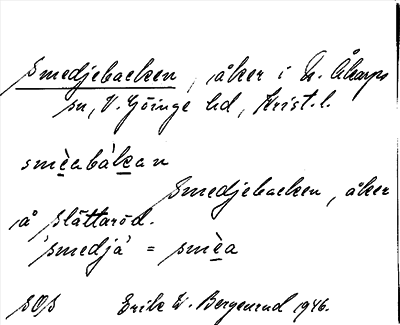 Smedjebacken, åker i N. Åkarps
sn, V. Göinge hd, Krist. l.
smèabàkan
Smedjebacken, åker
å Slättaröd.
'smedja' = smèa
SOS Erik W. Bergenrud 1946.